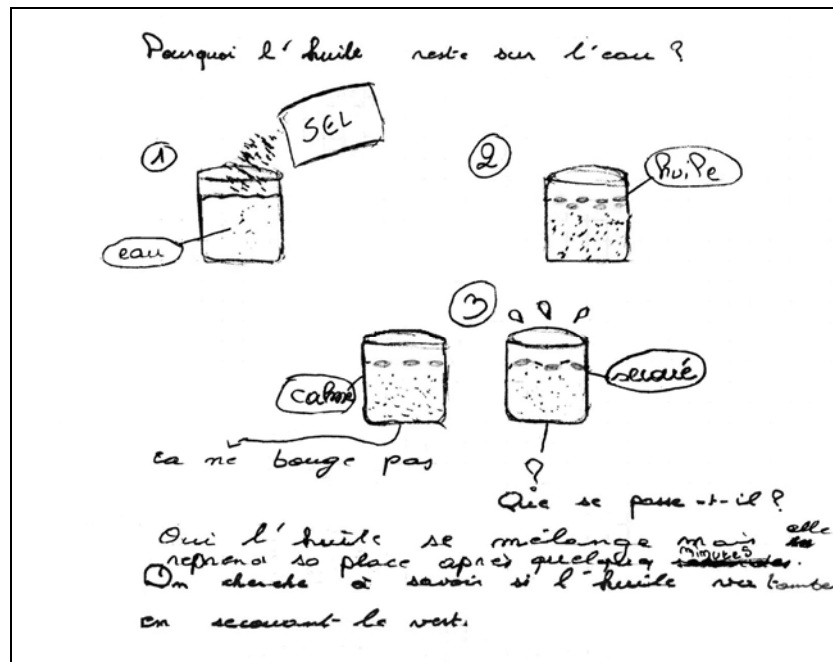 Pourquoi l'huile reste sur l'eau ?
1
SEL
eau
2
huile
3
calme
secoué
ca ne bouge pas
?
Que se passe-t-il ?
Oui l'huile se mélange mais elle
reprend sa place après quelques minutes.
On cherche à savoir si l'huile va tomber
en secouant le vert.